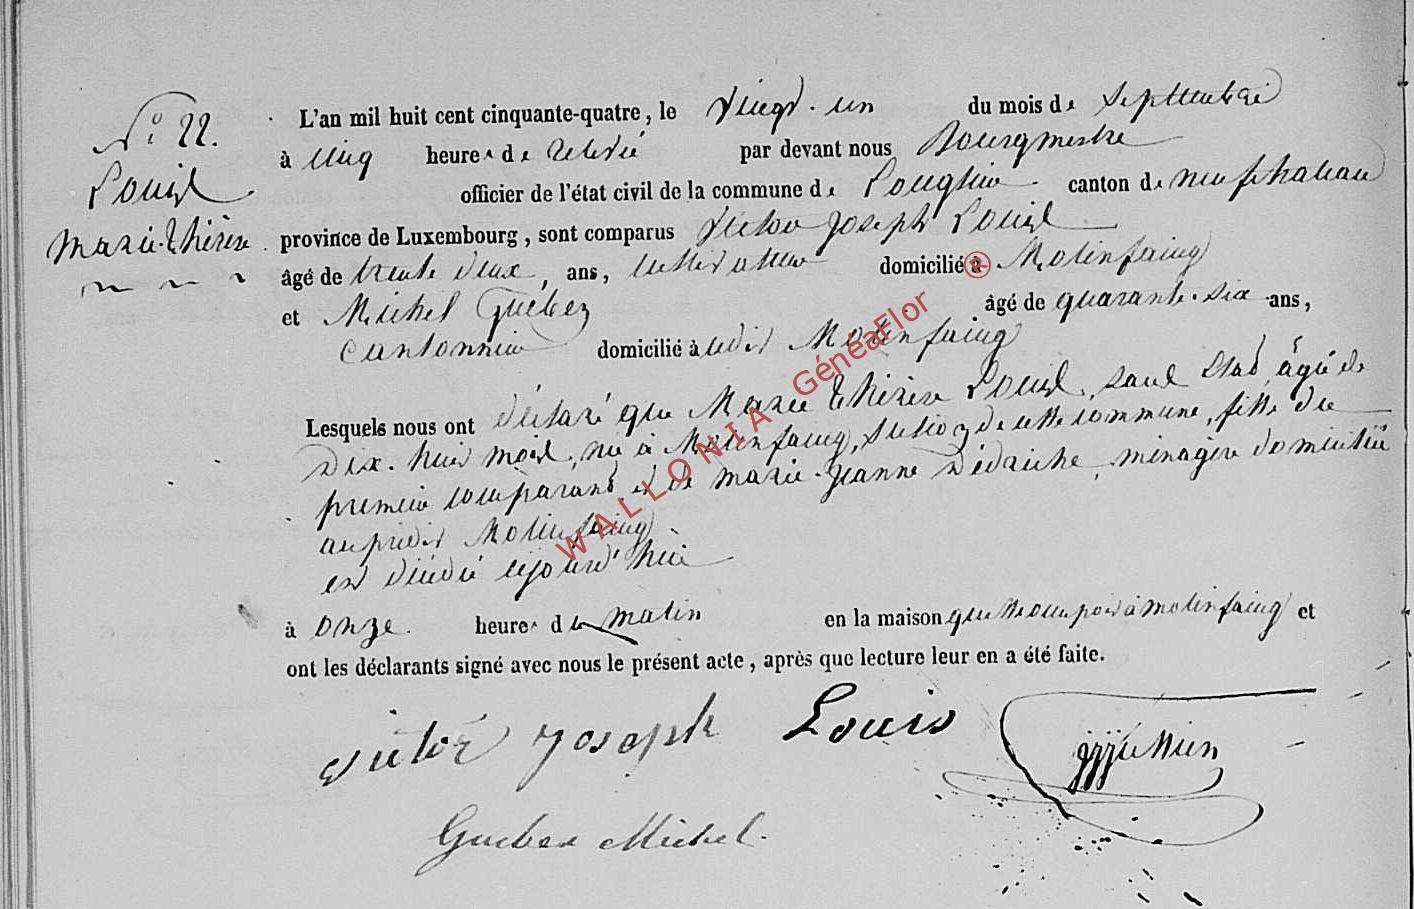 N° 22.
Louis
Marie-Thérèse
L'an mil huit cent cinquante-quatre, le vingt-un du mois de septembre
à cinq heures de relevée par devant nous Bourgmestre
officier de l'état civil de la commune de Longlier canton de neufchateau
province de Luxembourg, sont comparus Victor Joseph Louis
âgé de trente deux ans, cultivateur domicilié à Molinfaing
et Michel Guebez âgé de quarante-six ans,
Cantonnier domicilié à udit Molinfaing
Lesquels nous ont déclaré que Marie Thérèse Louis, sans état, âgée de
dix-huit mois, née à Molinfaing, section de cette commune, fille du
premier comparant et de marie-Jeanne, ménagère domiciliée
au prédit Molinfaing
est décédée cejourd'hui
à onze heures du matin en la maison qu'elle occupoit à molinfaing et
ont les déclarants signé avec nous le présent acte, après que lecture leur en a été faite.
victor Joseph Louis
Michel
WALLONIA GénéaFlor ®